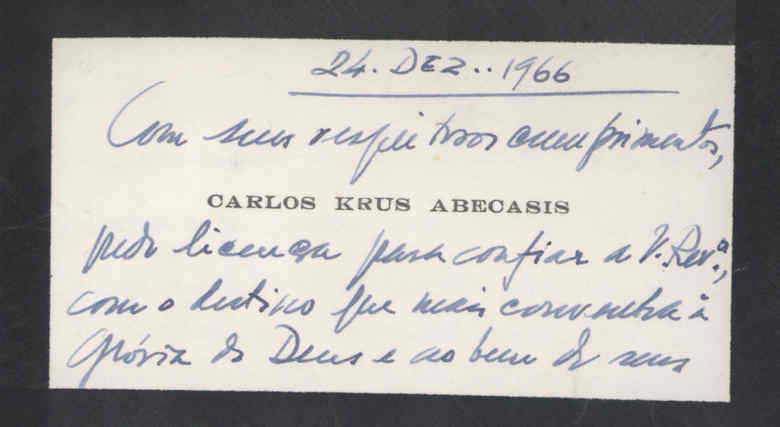 24. DEZ.. 1966
Com seus respeitosos cumprimentos,
CARLOS KRUS ABECASIS
pede licença para confiar a V. Rev.ª,
com o destino que mais convenha à
Glória de Deus e ao bem de seus